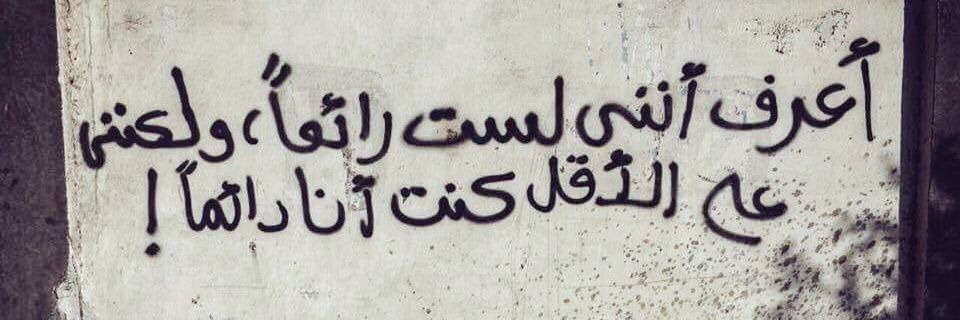 أعرف أنني لست رائعاً، ولكنني
على الأقل كنت أنا دائماً !